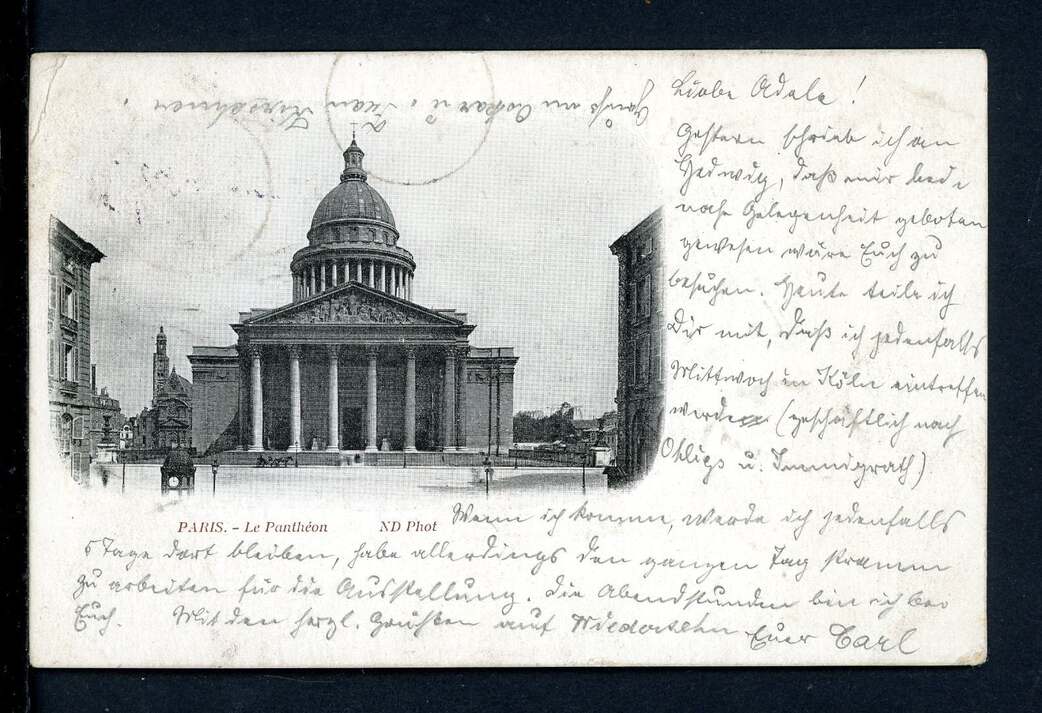 Liebe Adele!
Gestern schrieb ich an
Hedwig, daß mir beide
nahe Gelegenheit geboten
gewesen wäre Euch zu
besuchen. Heute teile ich
Dir mit, daß ich jedenfalls
Mittwoch in Köln eintreffen
werde (geschäftlich nach
Ohligs u. Immigrath)
Wenn ich komme, werde ich jedenfalls
5 Tage dort bleiben, habe allerdings den ganzen Tag stramm
zu arbeiten für die Ausstellung. Die Abendstunden bin ich bei
Euch. Mit den herzl. Grüßen auf Wiedersehn Euer Carl
Gruß an Oskar u.
PARIS. - Le Panthéon ND Phot